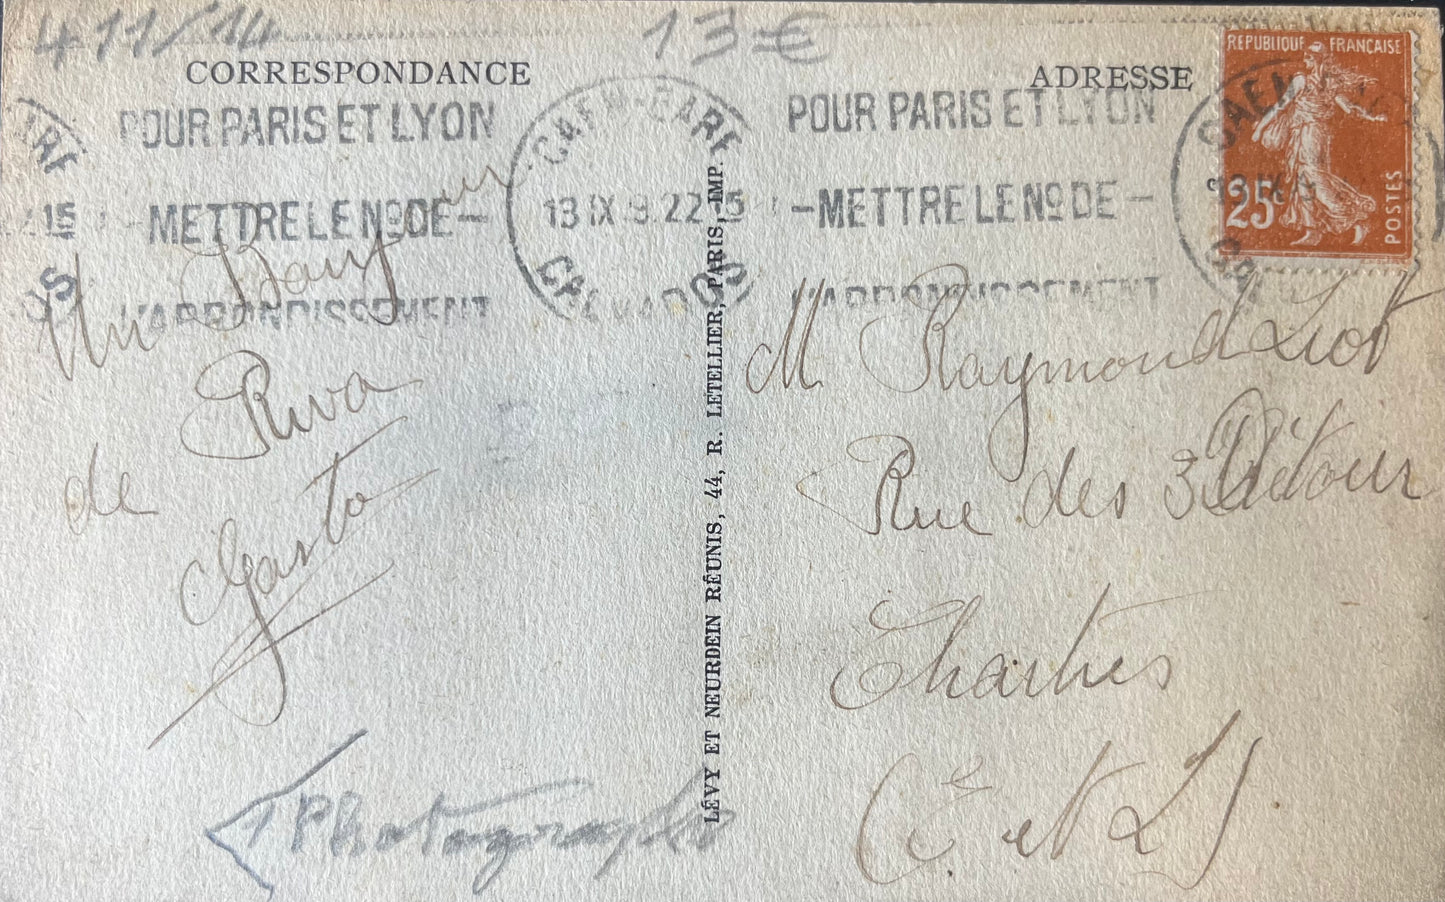 411/14
13 €
CORRESPONDANCE
ADRESSE
REPUBLIQUE FRANÇAISE
25
POSTES
POUR PARIS ET LYON
-METTRE LE No DE-
L'ARRONDISSEMENT
CAEN-GARE
13 IX 22 15
CALVADOS
POUR PARIS ET LYON
-METTRE LE No DE-
L'ARRONDISSEMENT
CAEN
GARE
15
OS
Un Bonjour
de Riva
Gasto
Photographe
LÉVY ET NEURDEIN RÉUNIS, 44, R. LETELLIER, PARIS, IMP.
M Raymond Liot
Rue des 3 Détour
Chartres
(E et L)